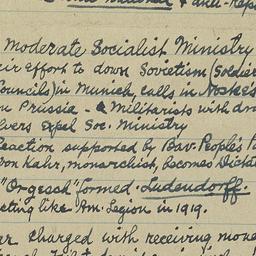 & anti-Rep
Moderate Socialist Ministry
eir effort to down Sovietism (Soldier
Councils) in Munich, calls in Noske's
Prussia - Militarists with
lvers Expel Soc. Ministry
Reaction supported by Bav. People's P
von Kahr, monarchist, becomes Dictat
"Orgesch" formed. Ludendorff.
cting like Am. Legion in 1919.
ar charged with receiving mone